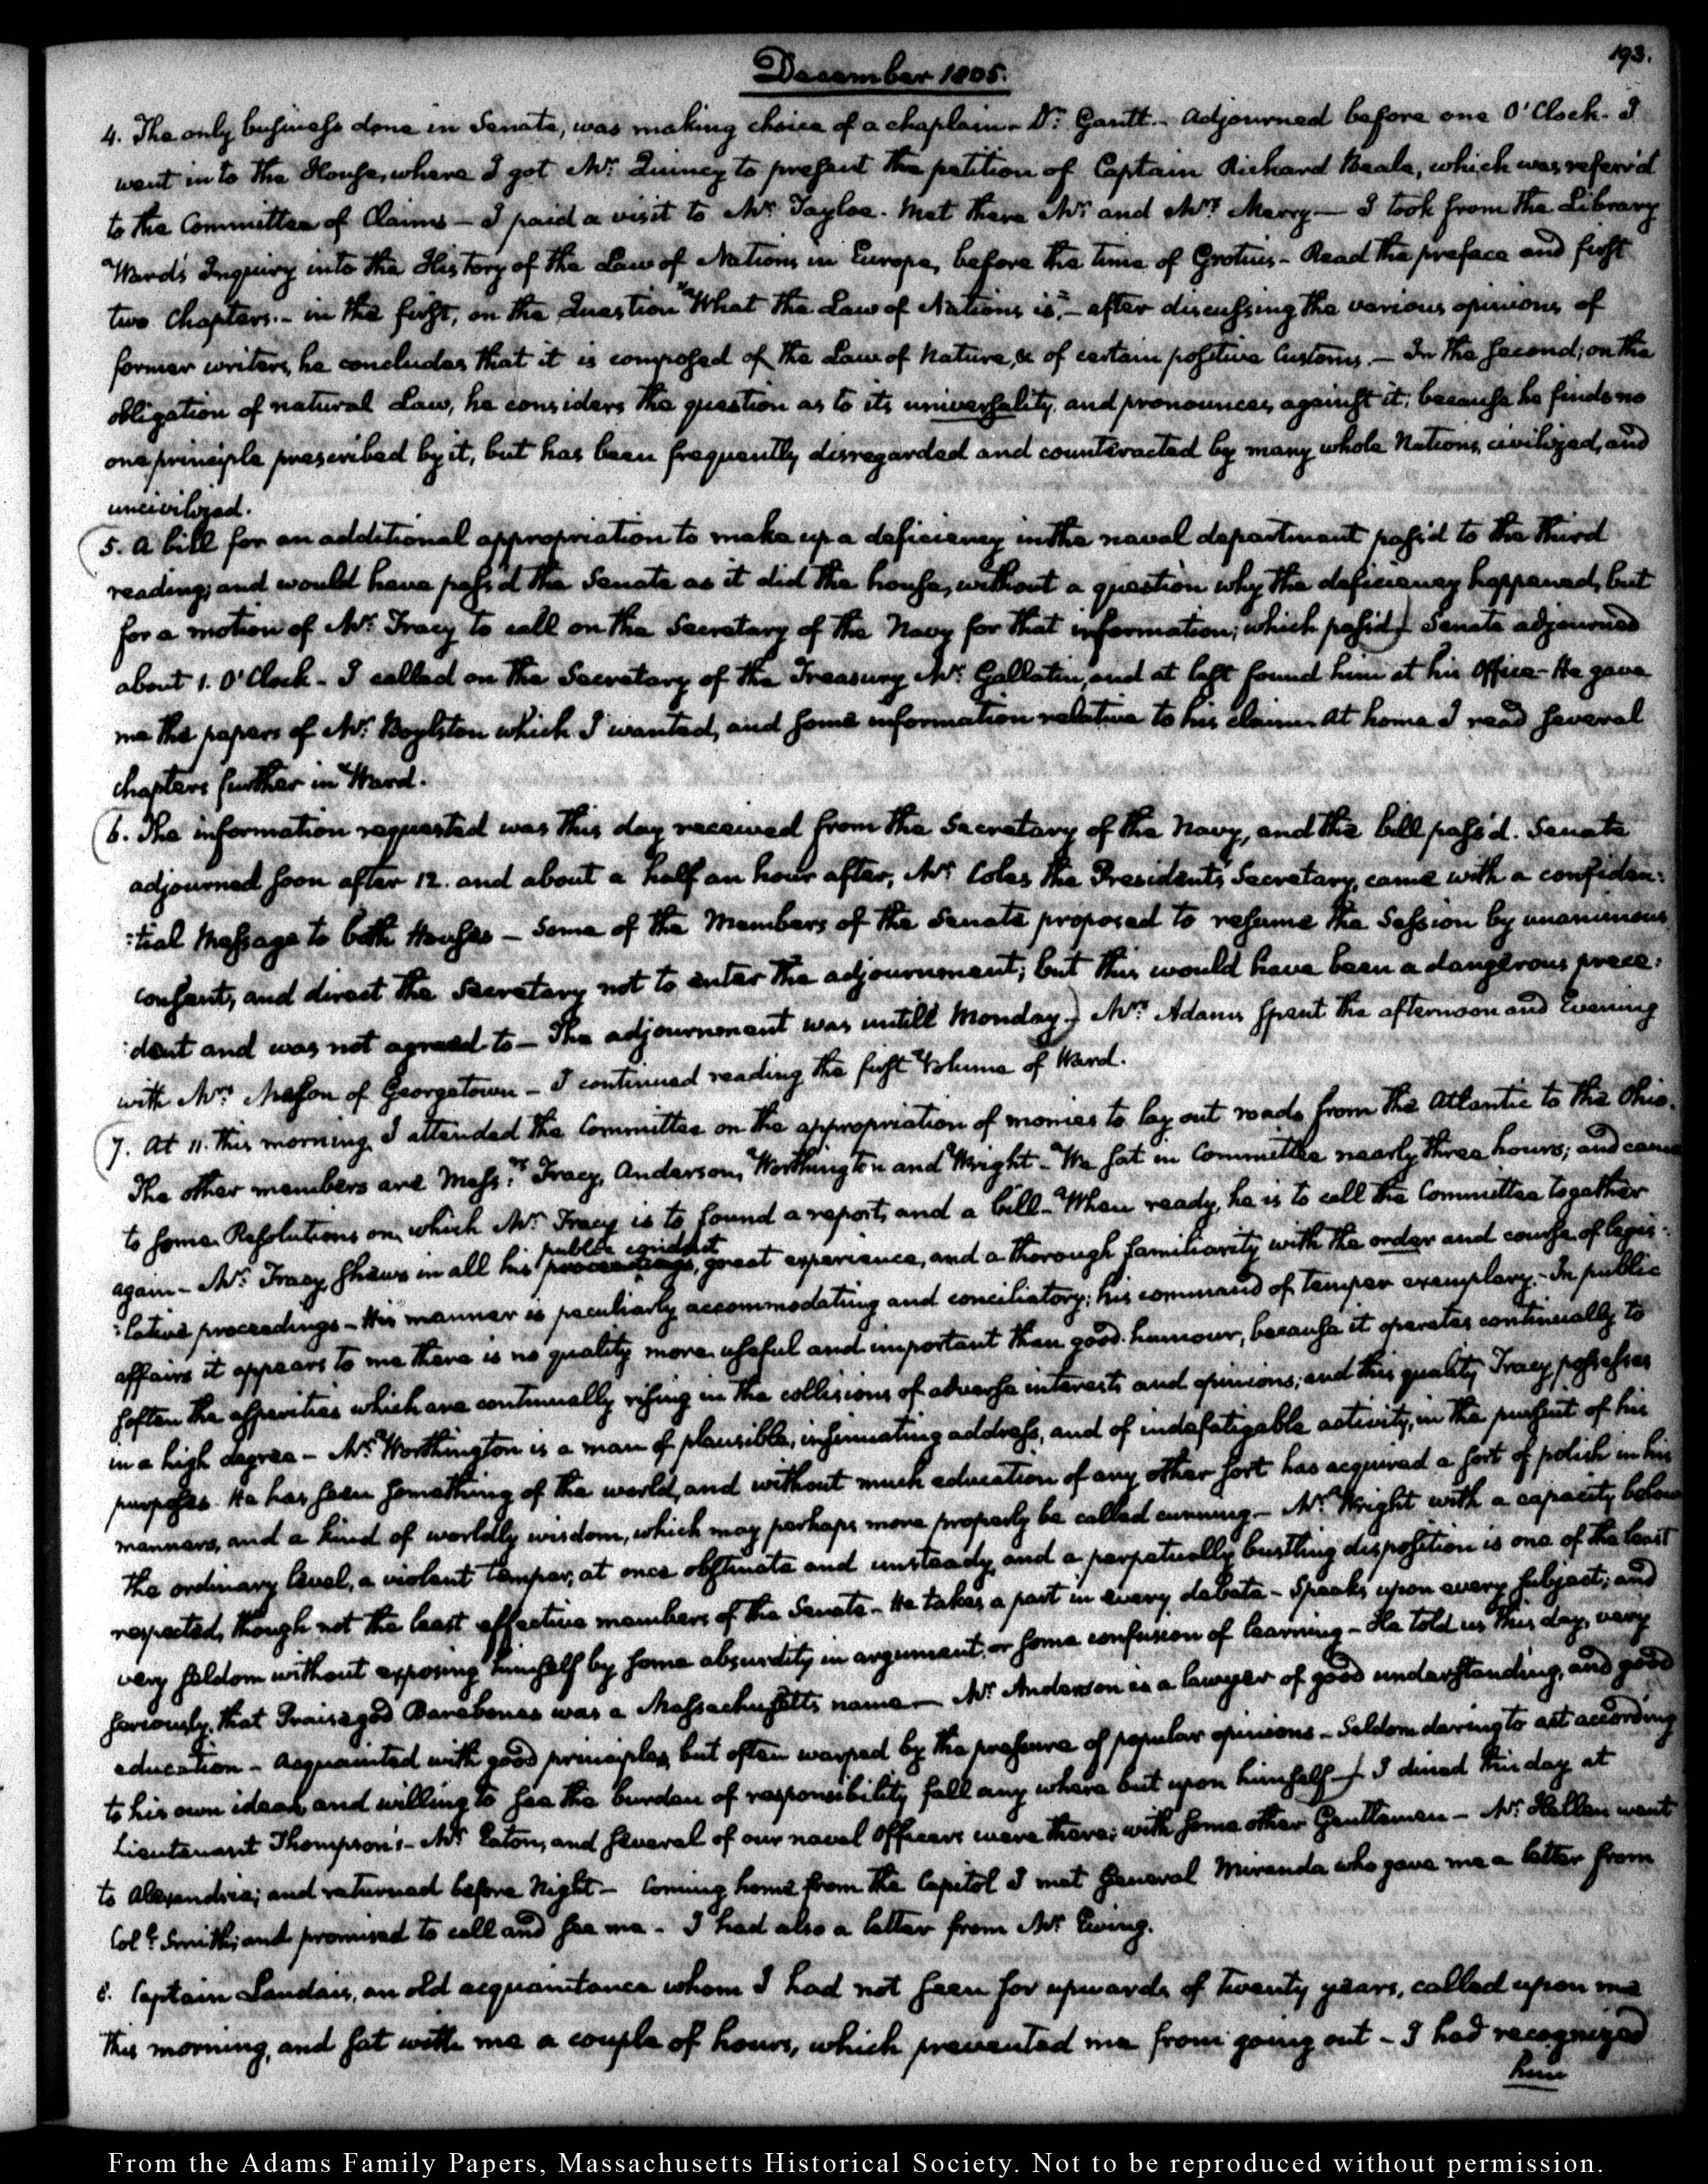 193.
December 1805.
4. The only business done in Senate, was making choice of a chaplain - Dr. Gantt - Adjourned before one O'Clock. I
went into the House, where I got Mr. Quincy to present the petition of Captain Richard Beale, which was referr'd
to the Committee of Claims - I paid a visit to Mr. Tayloe. Met there Mr. and Mrs. Merry - I took from the Library
Ward's Inquiry into the History of the Law of Nations in Europe, before the time of Grotius - Read the preface and first
two Chapters. - in the first, on the Question "What the Law of Nations is," - after discussing the various opinions of
former writers, he concludes that it is composed of the Law of Nature, & of certain positive Customs. - In the second; on the
obligation of natural Law, he considers the question as to its universality, and pronounces against it; because he finds no
one principle prescribed by it, but has been frequently disregarded and counteracted by many whole Nations, civilized, and
uncivilized.
5. A bill for an additional appropriation to make up a deficiency in the naval department pass'd to the third
reading; and would have pass'd the Senate as it did the house, without a question why the deficiency happened, but
for a motion of Mr. Tracy to call on the Secretary of the Navy for that information; which pass'd.) Senate adjourned
about 1. O'Clock - I called on the Secretary of the Treasury Mr. Gallatin, and at last found him at his Office - He gave
me the papers of Mr. Boylston which I wanted, and some information relative to his claims. At home I read several
chapters further in Ward.
6. The information requested was this day received from the Secretary of the Navy, and the bill pass'd. Senate
adjourned soon after 12. and about a half an hour after, Mr. Coles the President's Secretary, came with a confiden:
:tial Message to both Houses - Some of the Members of the Senate proposed to resume the Session by unanimous
consent, and direct the Secretary not to enter the adjournment; but this would have been a dangerous prece:
:dent and was not agreed to - The adjournment was untill Monday.) Mrs. Adams spent the afternoon and Evening
with Mrs. Mason of Georgetown - I continued reading the first Volume of Ward.
7. At 11. this morning I attended the Committee on the appropriation of monies to lay out roads from the Atlantic to the Ohio.
The other members are Messrs. Tracy, Anderson, Worthington and Wright - We sat in Committee nearly three hours; and came
to some Resolutions on which Mr. Tracy is to found a report, and a bill - When ready, he is to call the Committee together
public conduct
again - Mr. Tracy shews in all his proceedings, great experience, and a thorough familiarity with the order and course of legis:
:lative proceedings - His manner is peculiarly accommodating and conciliatory; his command of temper exemplary. - In public
affairs it appears to me there is no quality more useful and important than good-humour, because it operates continually to
soften the asperities which are continually rising in the collisions of adverse interests and opinions; and this quality Tracy possesses
in a high degree - Mr. Worthington is a man of plausible, insinuating address, and of indefatigable activity, in the pursuit of his
purposes. He has seen something of the world, and without much education of any other sort has acquired a sort of polish in his
manners, and a kind of worldly wisdom, which may perhaps more properly be called cunning - Mr. Wright with a capacity below
the ordinary level, a violent temper, at once obstinate and unsteady, and a perpetually bustling disposition is one of the least
respected, though not the least effective members of the Senate - He takes a part in every debate - Speaks upon every subject; and
very seldom without exposing himself by some absurdity in argument, or some confusion of learning - He told us this day, very
seriously, that Praisegod Barebones was a Massachusetts name - Mr. Anderson is a lawyer of good understanding, and good
education - Acquainted with good principles, but often warped by the pressure of popular opinions - Seldom daring to act according
to his own ideas, and willing to see the burden of responsibility fall any where but upon himself -) I dined this day at
Lieutenant Thompson's - Mr. Eaton, and several of our naval Officers were there; with some other Gentlemen - Mr. Hellen went
to Alexandria; and returned before Night - Coming home from the Capitol I met General Miranda who gave me a letter from
Coll. Smith; and promised to call and see me - I had also a letter from Mr. Ewing.
8. Captain Landais, an old acquaintance whom I had not seen for upwards of twenty years, called upon me
this morning, and sat with me a couple of hours, which prevented me from going out - I had recognized
him
From the Adams Family Papers, Massachusetts Historical Society. Not to be reproduced without permission.